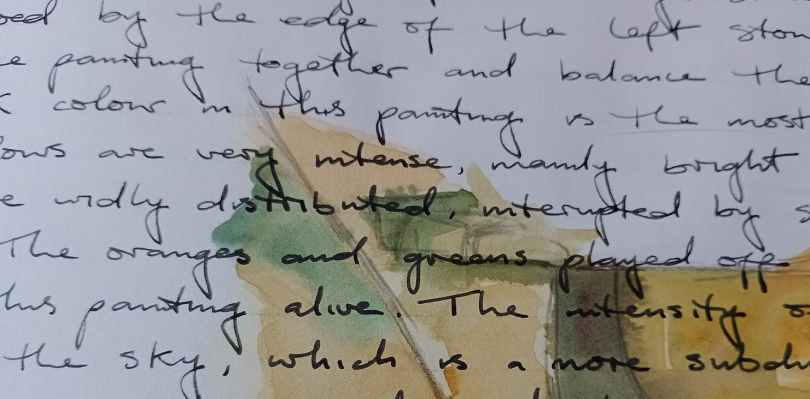 by the edge of the left ston
painting together and balance the
colour in this painting is the most
ows are very intense, mainly bright
e widly distributed, interrupted by s
The oranges and greens played off
his painting alive. The intensity o
the sky, which is a more subdu